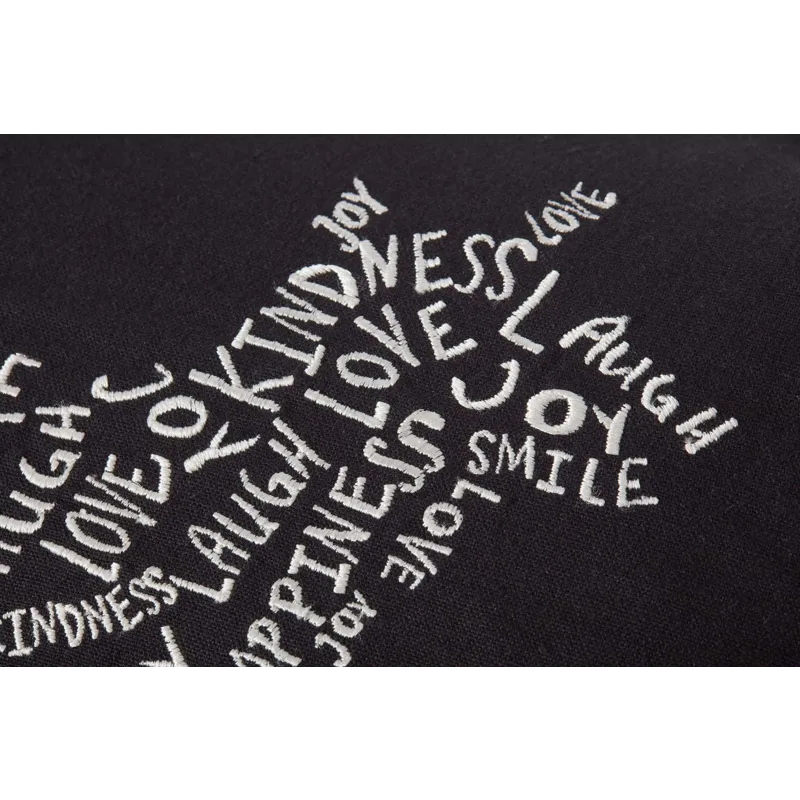 JOY
LOVE
KINDNESS
LAUGH
LOVE
JOY
JOY
SMILE
LOVE
LAUGH
HAPPINESS
LOVE
KINDNESS
JOY